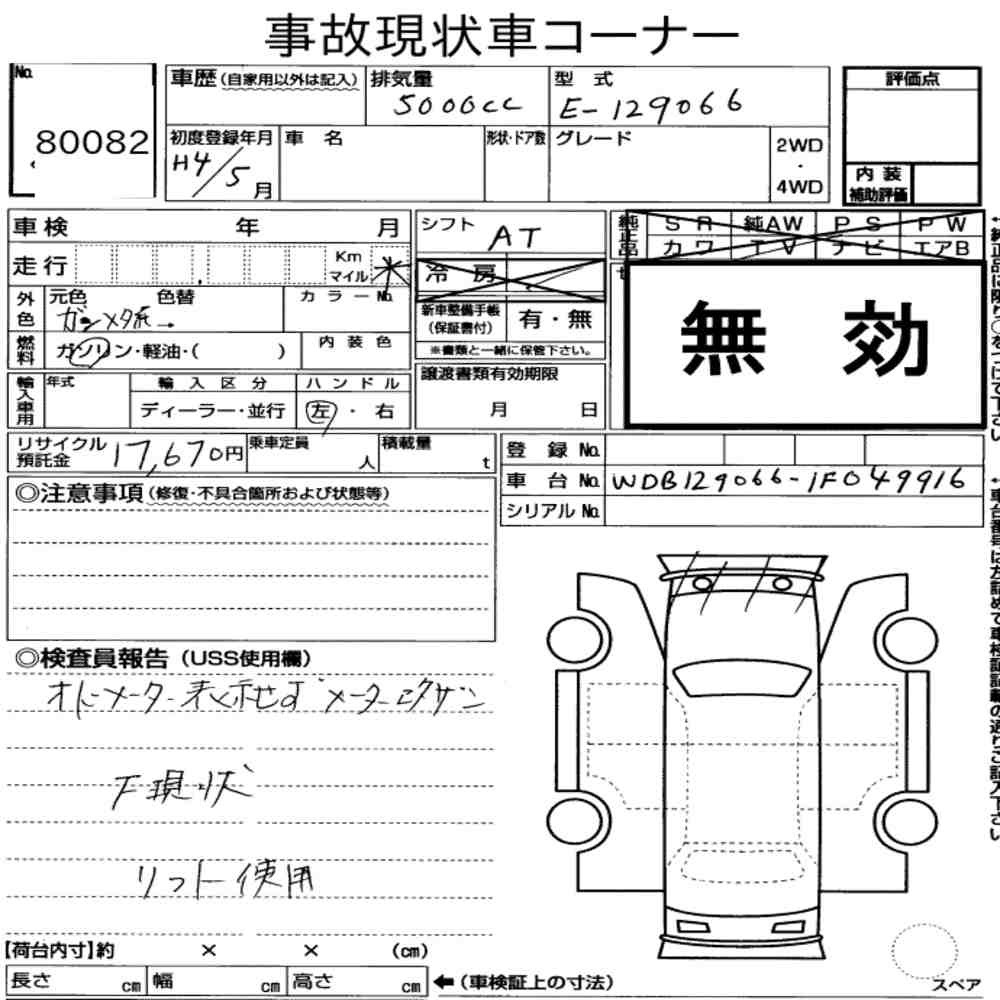 事故現状車コーナー
No.
80082
車歴(自家用以外は記入)
排気量
5000cc
型式
E-129066
評価点
初度登録年月
H4/5月
車名
形状・ドア数
グレード
2WD
・
4WD
内装
補助評価
車検 年 月
シフト
AT
純正品
SR 純AW PS PW
カワ TV ナビ エアB
走行
Km
マイル
*
冷房
外色
元色 色替
ガンメタ系→
カラーNo.
新車整備手帳
(保証書付)
有・無
※書類と一緒に保管下さい。
無効
燃料
ガソリン・軽油・( )
内装色
輸入車用
年式
輸入区分
ディーラー・並行
ハンドル
左・右
譲渡書類有効期限
月 日
リサイクル
預託金
17,670円
乗車定員
人
積載量
t
登録No.
車台No.
WDB129066-1F049916
シリアルNo.
◎注意事項(修復・不具合箇所および状態等)
◎検査員報告(USS使用欄)
オドメーター表示せず メーター
下現状
リフト使用
【荷台内寸】約 × × (cm)
長さ cm 幅 cm 高さ cm
←(車検証上の寸法)
スペア
←純正品に限り○をつけて下さい
←車台番号は左詰めで車検証記載の通りご記入下さい